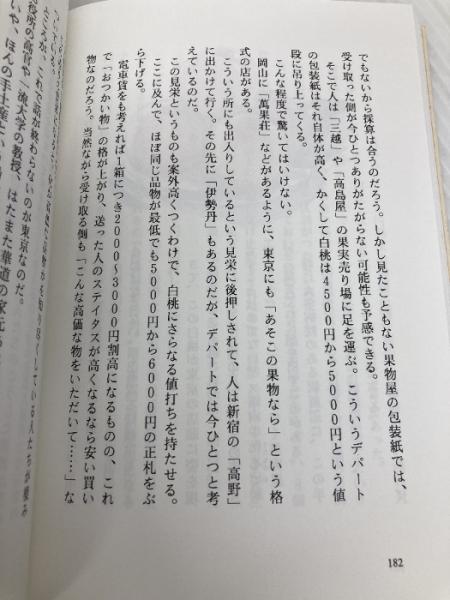 でもないから採算は合うのだろう。しかし見たこともない果物屋の包装紙では、
受け取った側が今ひとつありがたがらない可能性も予感できる。
そこで人は「三越」や「高島屋」の果実売り場に足を運ぶ。こういうデパート
の包装紙はそれ自体が高く、かくして白桃は4500円から5000円という値
段に吊り上ってくる。
こんな程度で驚いてはいけない。
岡山に「萬果荘」などがあるように、東京にも「あそこの果物なら」という格
式の店がある。
こういう所にも出入りしているという見栄に後押しされて、人は新宿の「高野」
に出かけて行く。その先に「伊勢丹」もあるのだが、デパートでは今ひとつと考
えているのだ。
この見栄というものも案外高くつくわけで、白桃にさらなる値打ちを持たせる。
ここに及んで、ほぼ同じ品物が最低でも5000円から6000円の正札をぶ
ら下げる。
電車賃をも考えれば1箱につき2000〜3000円割高になるものの、これ
で「おつかい物」の格が上がり、送った人のステイタスが高くなるなら安い買い
物なのだろう。当然ながら受け取る側も「こんな高価な物をいただいて……」な
ところが、これで話が終わらないのが東京なのだ。
役所の高官や一流大学の教授、はたまた華道の家元
182